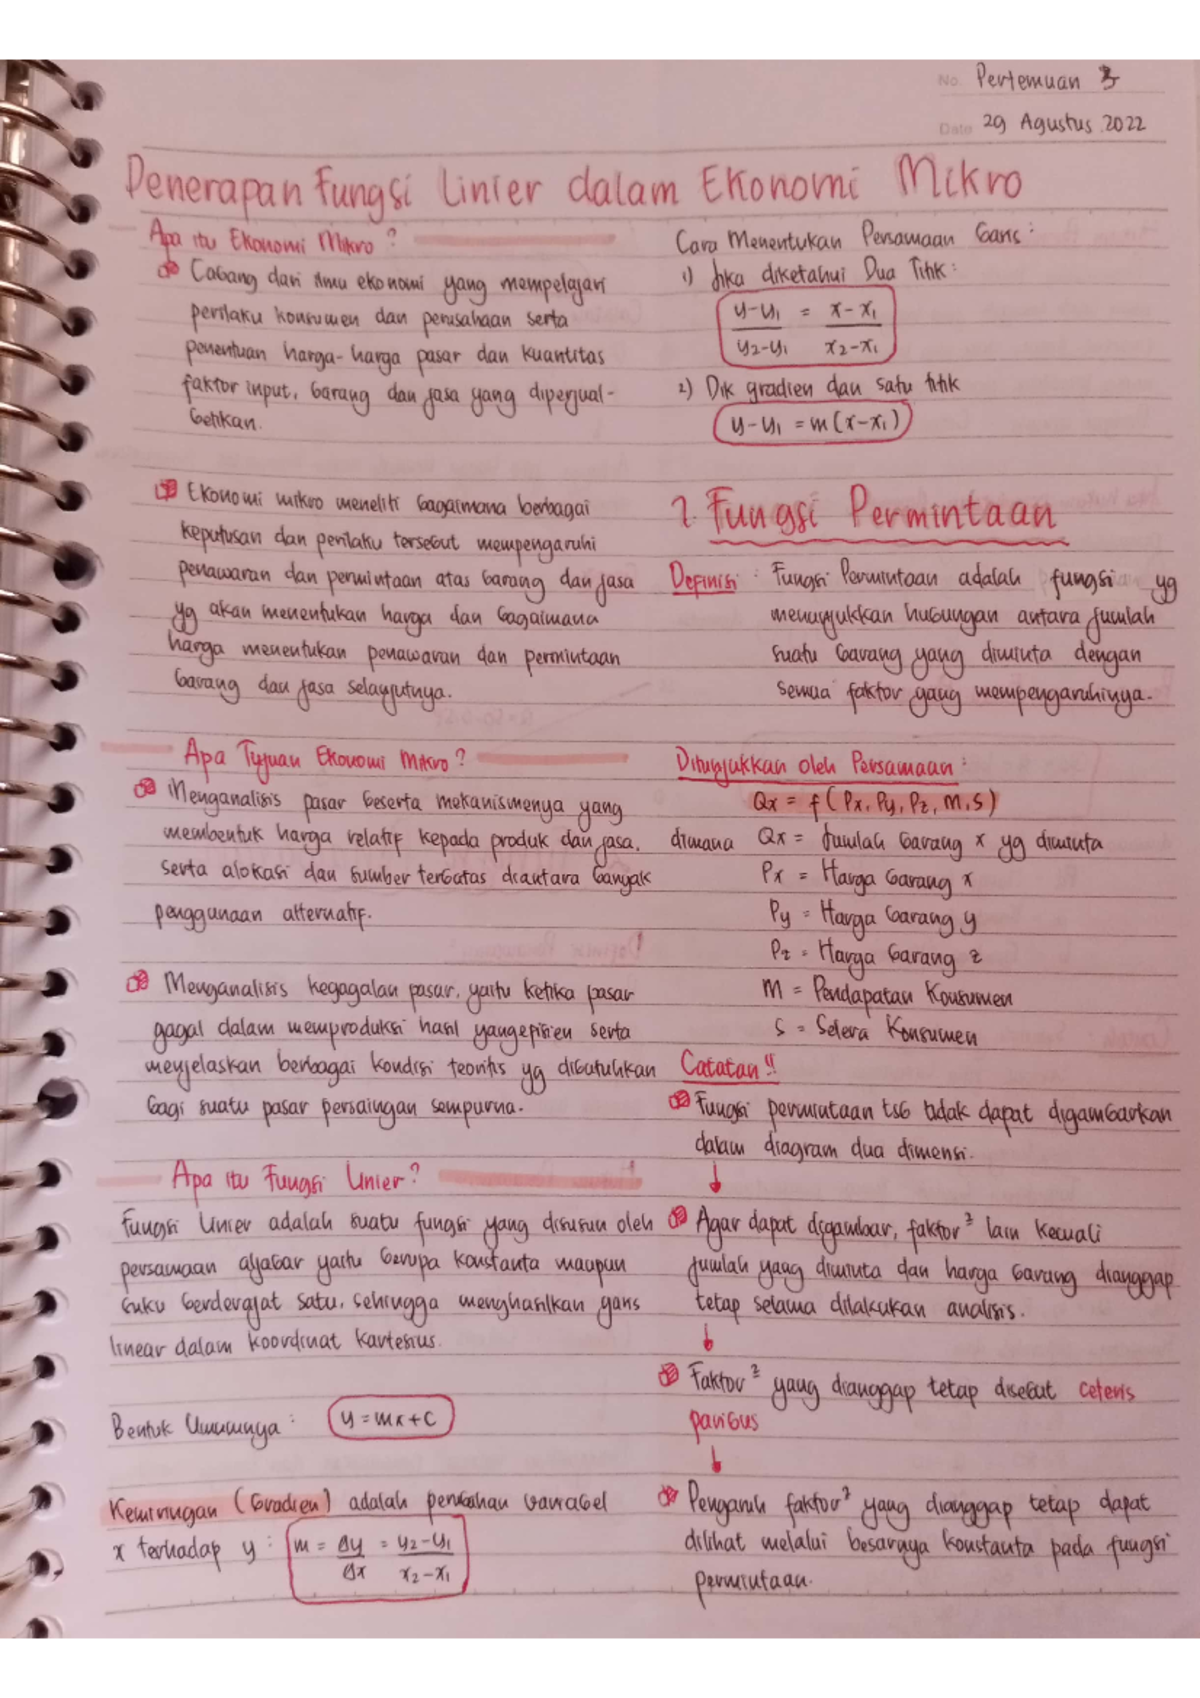 No. Pertemuan 3
Date 29 Agustus 2022
Penerapan Fungsi Linier dalam Ekonomi Mikro
Apa itu Ekonomi Mikro?
Cabang dari ilmu ekonomi yang mempelajari
perilaku konsumen dan perusahaan serta
penentuan harga-harga pasar dan kuantitas
faktor input, barang dan jasa yang diperjual-
belikan.
Ekonomi mikro meneliti bagaimana berbagai
keputusan dan perilaku tersebut mempengaruhi
penawaran dan permintaan atas barang dan jasa
yg akan menentukan harga dan bagaimana
harga menentukan penawaran dan permintaan
barang dan jasa selanjutnya.
Apa Tujuan Ekonomi Mikro?
Menganalisis pasar beserta mekanismenya yang
membentuk harga relatif kepada produk dan jasa,
serta alokasi dan sumber terbatas diantara banyak
penggunaan alternatif.
Menganalisis kegagalan pasar, yaitu ketika pasar
gagal dalam memproduksi hasil yang efisien serta
menjelaskan berbagai kondisi teoritis yg dibutuhkan
bagi suatu pasar persaingan sempurna.
Apa itu Fungsi Linier?
Fungsi Linier adalah suatu fungsi yang disusun oleh
persamaan aljabar yaitu berupa konstanta maupun
suku berderajat satu, sehingga menghasilkan garis
linear dalam koordinat kartesius.
Bentuk Umumnya : y = mx + c
Kemiringan (Gradien) adalah perubahan variabel
x terhadap y : m = Δy/Δx = y2-y1/x2-x1
Cara Menentukan Persamaan Garis :
1) Jika diketahui Dua Titik :
y-y1/y2-y1 = x-x1/x2-x1
2) Dik gradien dan satu titik
y-y1 = m(x-x1)
1. Fungsi Permintaan
Definisi : Fungsi Permintaan adalah fungsi yg
menunjukkan hubungan antara jumlah
suatu barang yang diminta dengan
semua faktor yang mempengaruhinya.
Ditunjukkan oleh Persamaan :
Qx = f(Px, Py, Pz, M, S)
dimana Qx = Jumlah barang x yg diminta
Px = Harga barang x
Py = Harga barang y
Pz = Harga barang z
M = Pendapatan Konsumen
S = Selera Konsumen
Catatan!!
Fungsi permintaan tsb tidak dapat digambarkan
dalam diagram dua dimensi.
↓
Agar dapat digambar, faktor² lain kecuali
jumlah yang diminta dan harga barang dianggap
tetap selama dilakukan analisis.
↓
Faktor² yang dianggap tetap disebut ceteris
paribus
↓
Pengaruh faktor² yang dianggap tetap dapat
dilihat melalui besarnya konstanta pada fungsi
permintaan.